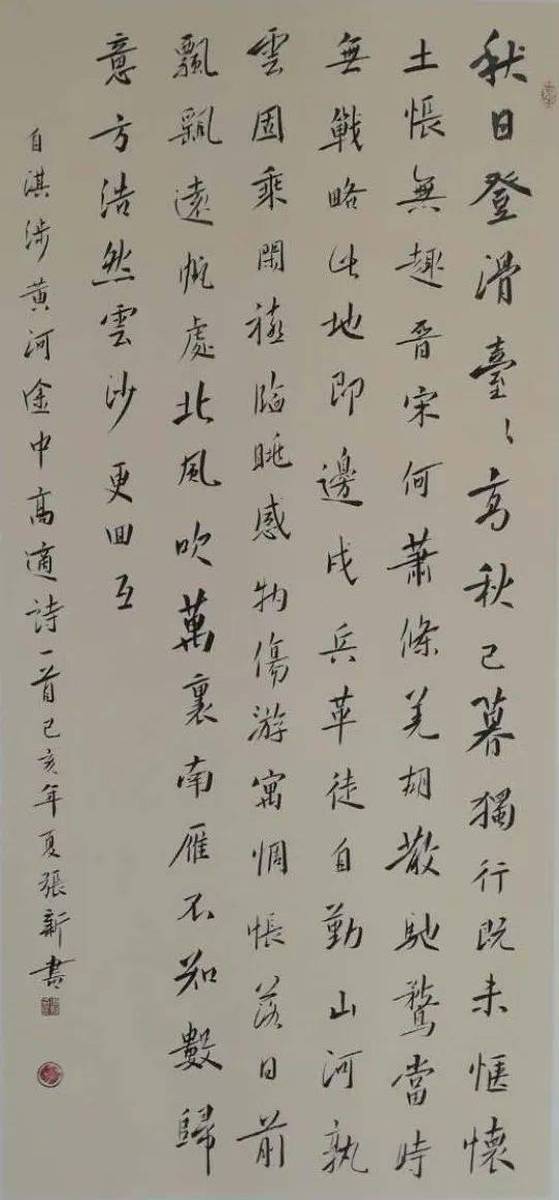 秋日登滑臺〻高秋已暮獨行既未愜懷
土悵無趣晋宋何蕭條羌胡散馳鶩當時
無戰略此地即邊戍兵革徒自勤山河孰
雲固乘閑禧臨眺感物傷游寓惆悵落日前
飄飄遠帆處北風吹萬裏南雁不知數歸
意方浩然雲沙更回互
自淇涉黄河途中高適詩一首己亥年夏張新書